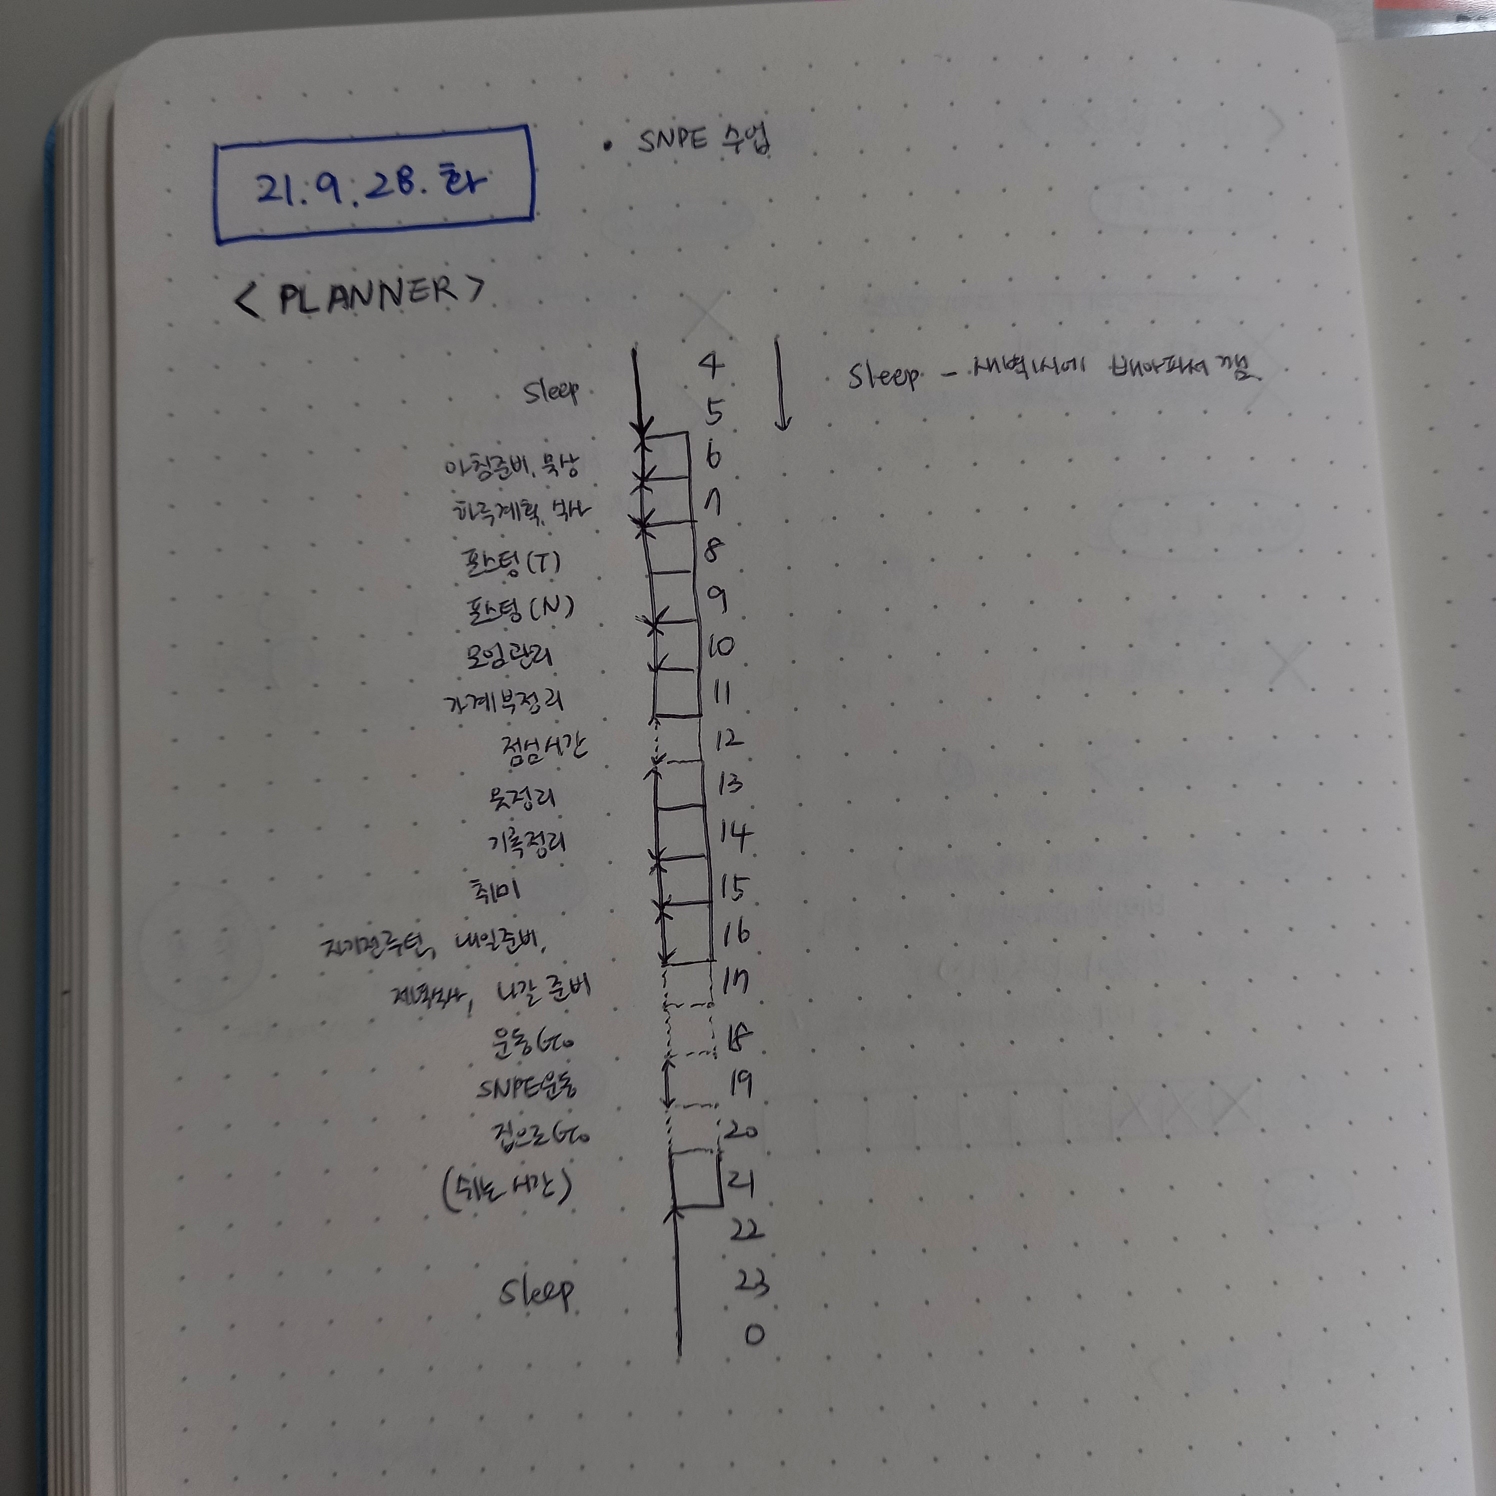 21.9.28.화
• SNPE 수업
<PLANNER>
sleep 4 sleep - 새벽1시에 배아파서 깸
5
아침준비, 묵상 6
하루계획, 식사 7
포스팅(T) 8
포스팅(N) 9
모임관리 10
가계부정리 11
점심시간 12
옷정리 13
기록정리 14
취미 15
자기전루틴, 내일준비, 16
저녁식사, 나갈 준비 17
운동 Go 18
SNPE운동 19
집으로 Go 20
(쉬는 시간) 21
22
sleep 23
0